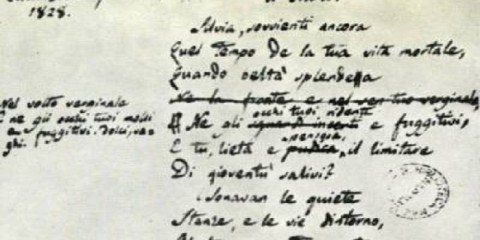 1828.
Silvia, sovvienti ancora
Quel tempo de la tua vita mortale,
Quando beltà splendea
Nel volto verginale
E ne gli occhi tuoi molli
e fuggitivi. Dolci, va-
ghi.
Ne la fronte e nel sen tuo verginale,
occhi tuoi ridenti
E Ne gli sguardi incerti e fuggitivi,
pensosa,
E tu, lieta e pudica, il limitare
Di gioventù salivi?
Sonavan le quiete
Stanze, e le vie dintorno,